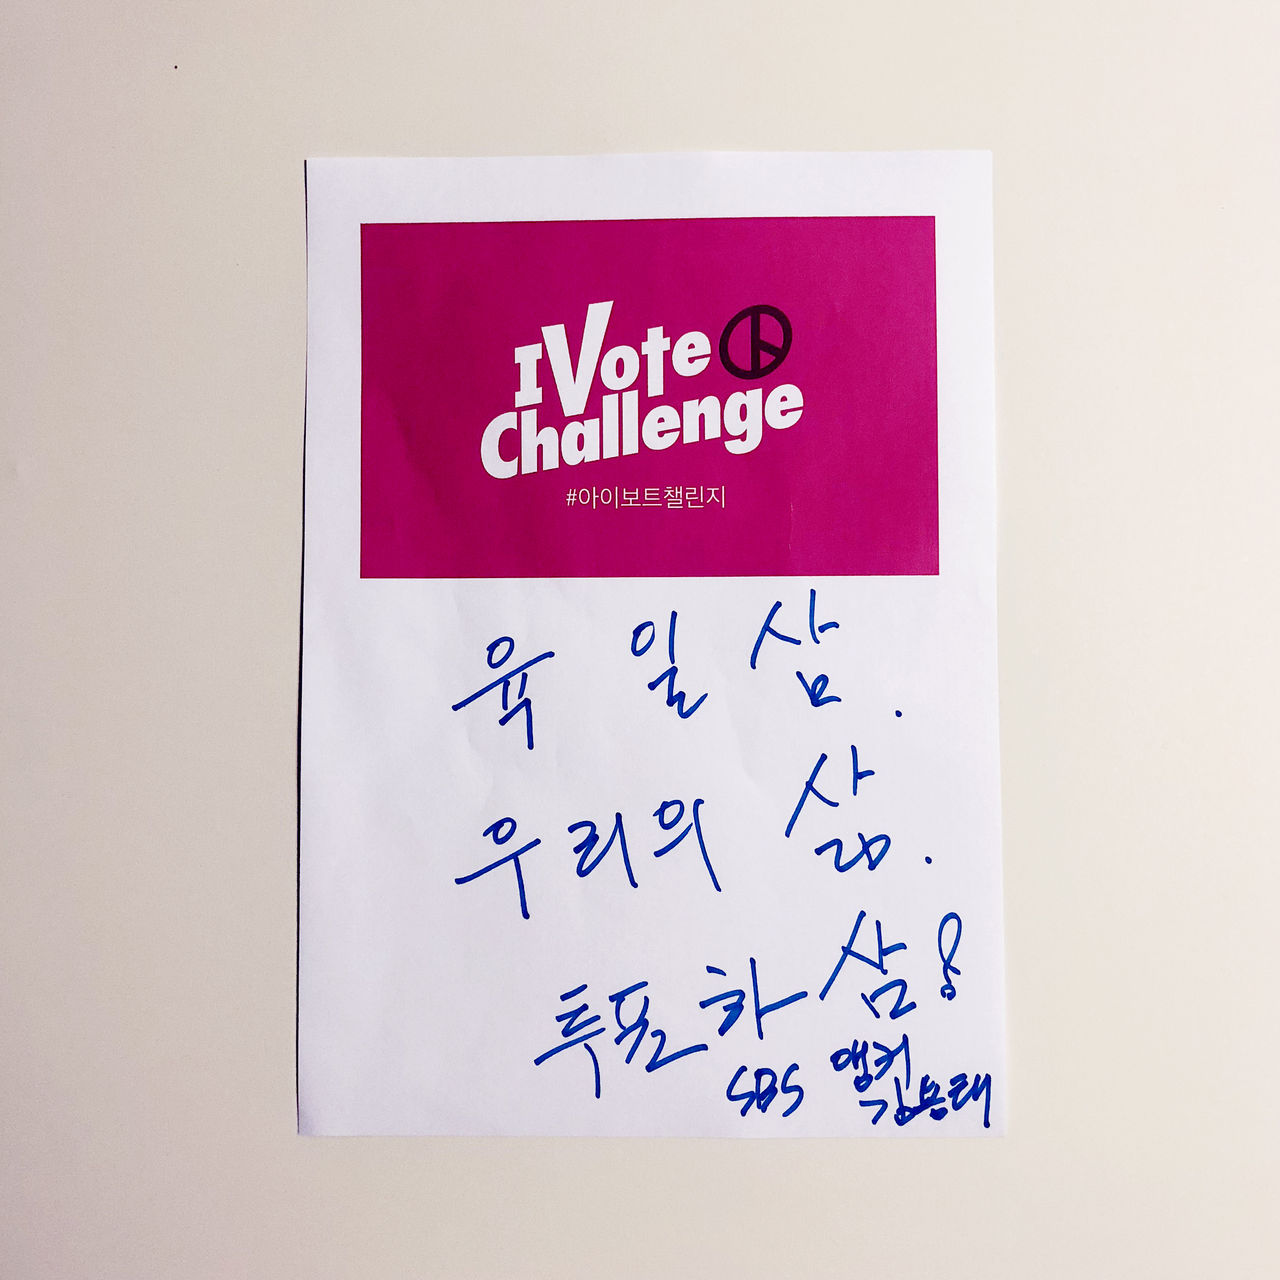 I Vote
Challenge
#아이보트챌린지
육 일 삼.
우리의 삶.
투표하삼!
SBS 앵커
김용태